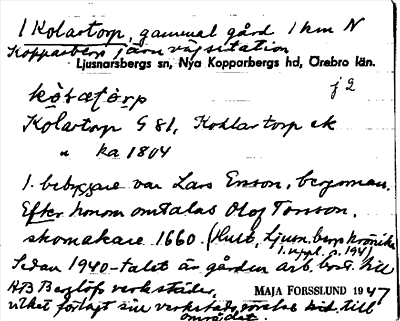 1 Kolartorp, gammal gård 1 km N
Kopparberg järnvägsstation
Ljusnarsbergs sn, Nya Kopparbergs hd, Örebro län.
j 2
Kolartorp G 81, Kohlartorp ek
" ka 1804
1. bebyggare var Lars Ersson, bergsman.
Efter honom omtalas Olof Tonsson,
skomakare 1660. (Hult, Ljusn. bergs krönika
1. uppl. s. 194)
Sedan 1940-talet är gården arb. bost. till
AB Berglöfs verkstäder,
MAJA FORSSLUND 1947
vilket förlagt sin verkstadsrörelse till
området.